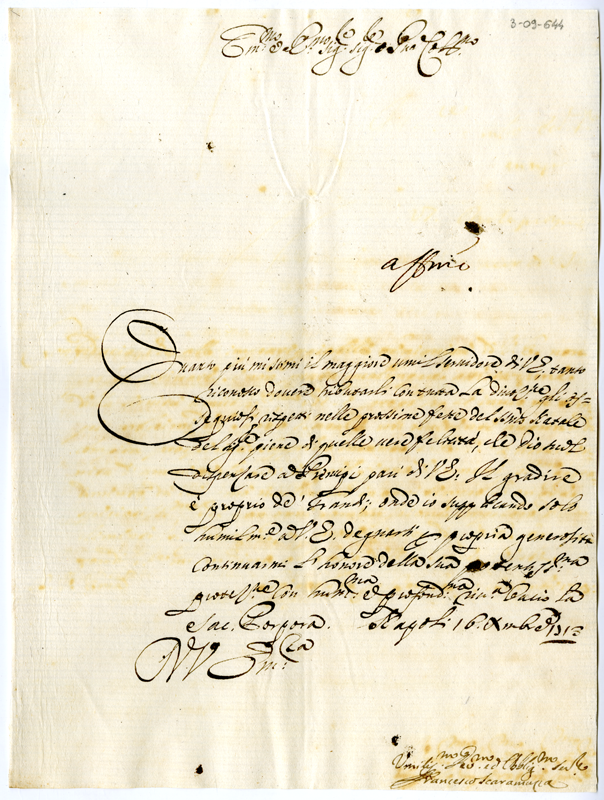 3-09-644
Em.mo e R.mo Sig.re Sig.re e Pne Col.mo
Quanto più mi stimo il maggiore umil servidore di V.E. tanto
riconosco dovere tributarli con tutta la divoz.ne gli os=
sequiosi nelle prossime feste del Natale
del Sig.re piene di quelle vere felicità, che Dio suol
dispensare a Prencipi pari di V.E: Il gradire
è proprio de' Grandi; onde io supplicando solo
humilm.te V.E. degnarsi propria generosità
continuarmi l'honore della sua
protez.ne con hum.ma e profond.ma bacio la
Sac. Porpora. Napoli 16. Xmbre
Di V. Em.za
Umiliss.mo Dev.mo ed Obblig.mo
Francesco Scaramuccia